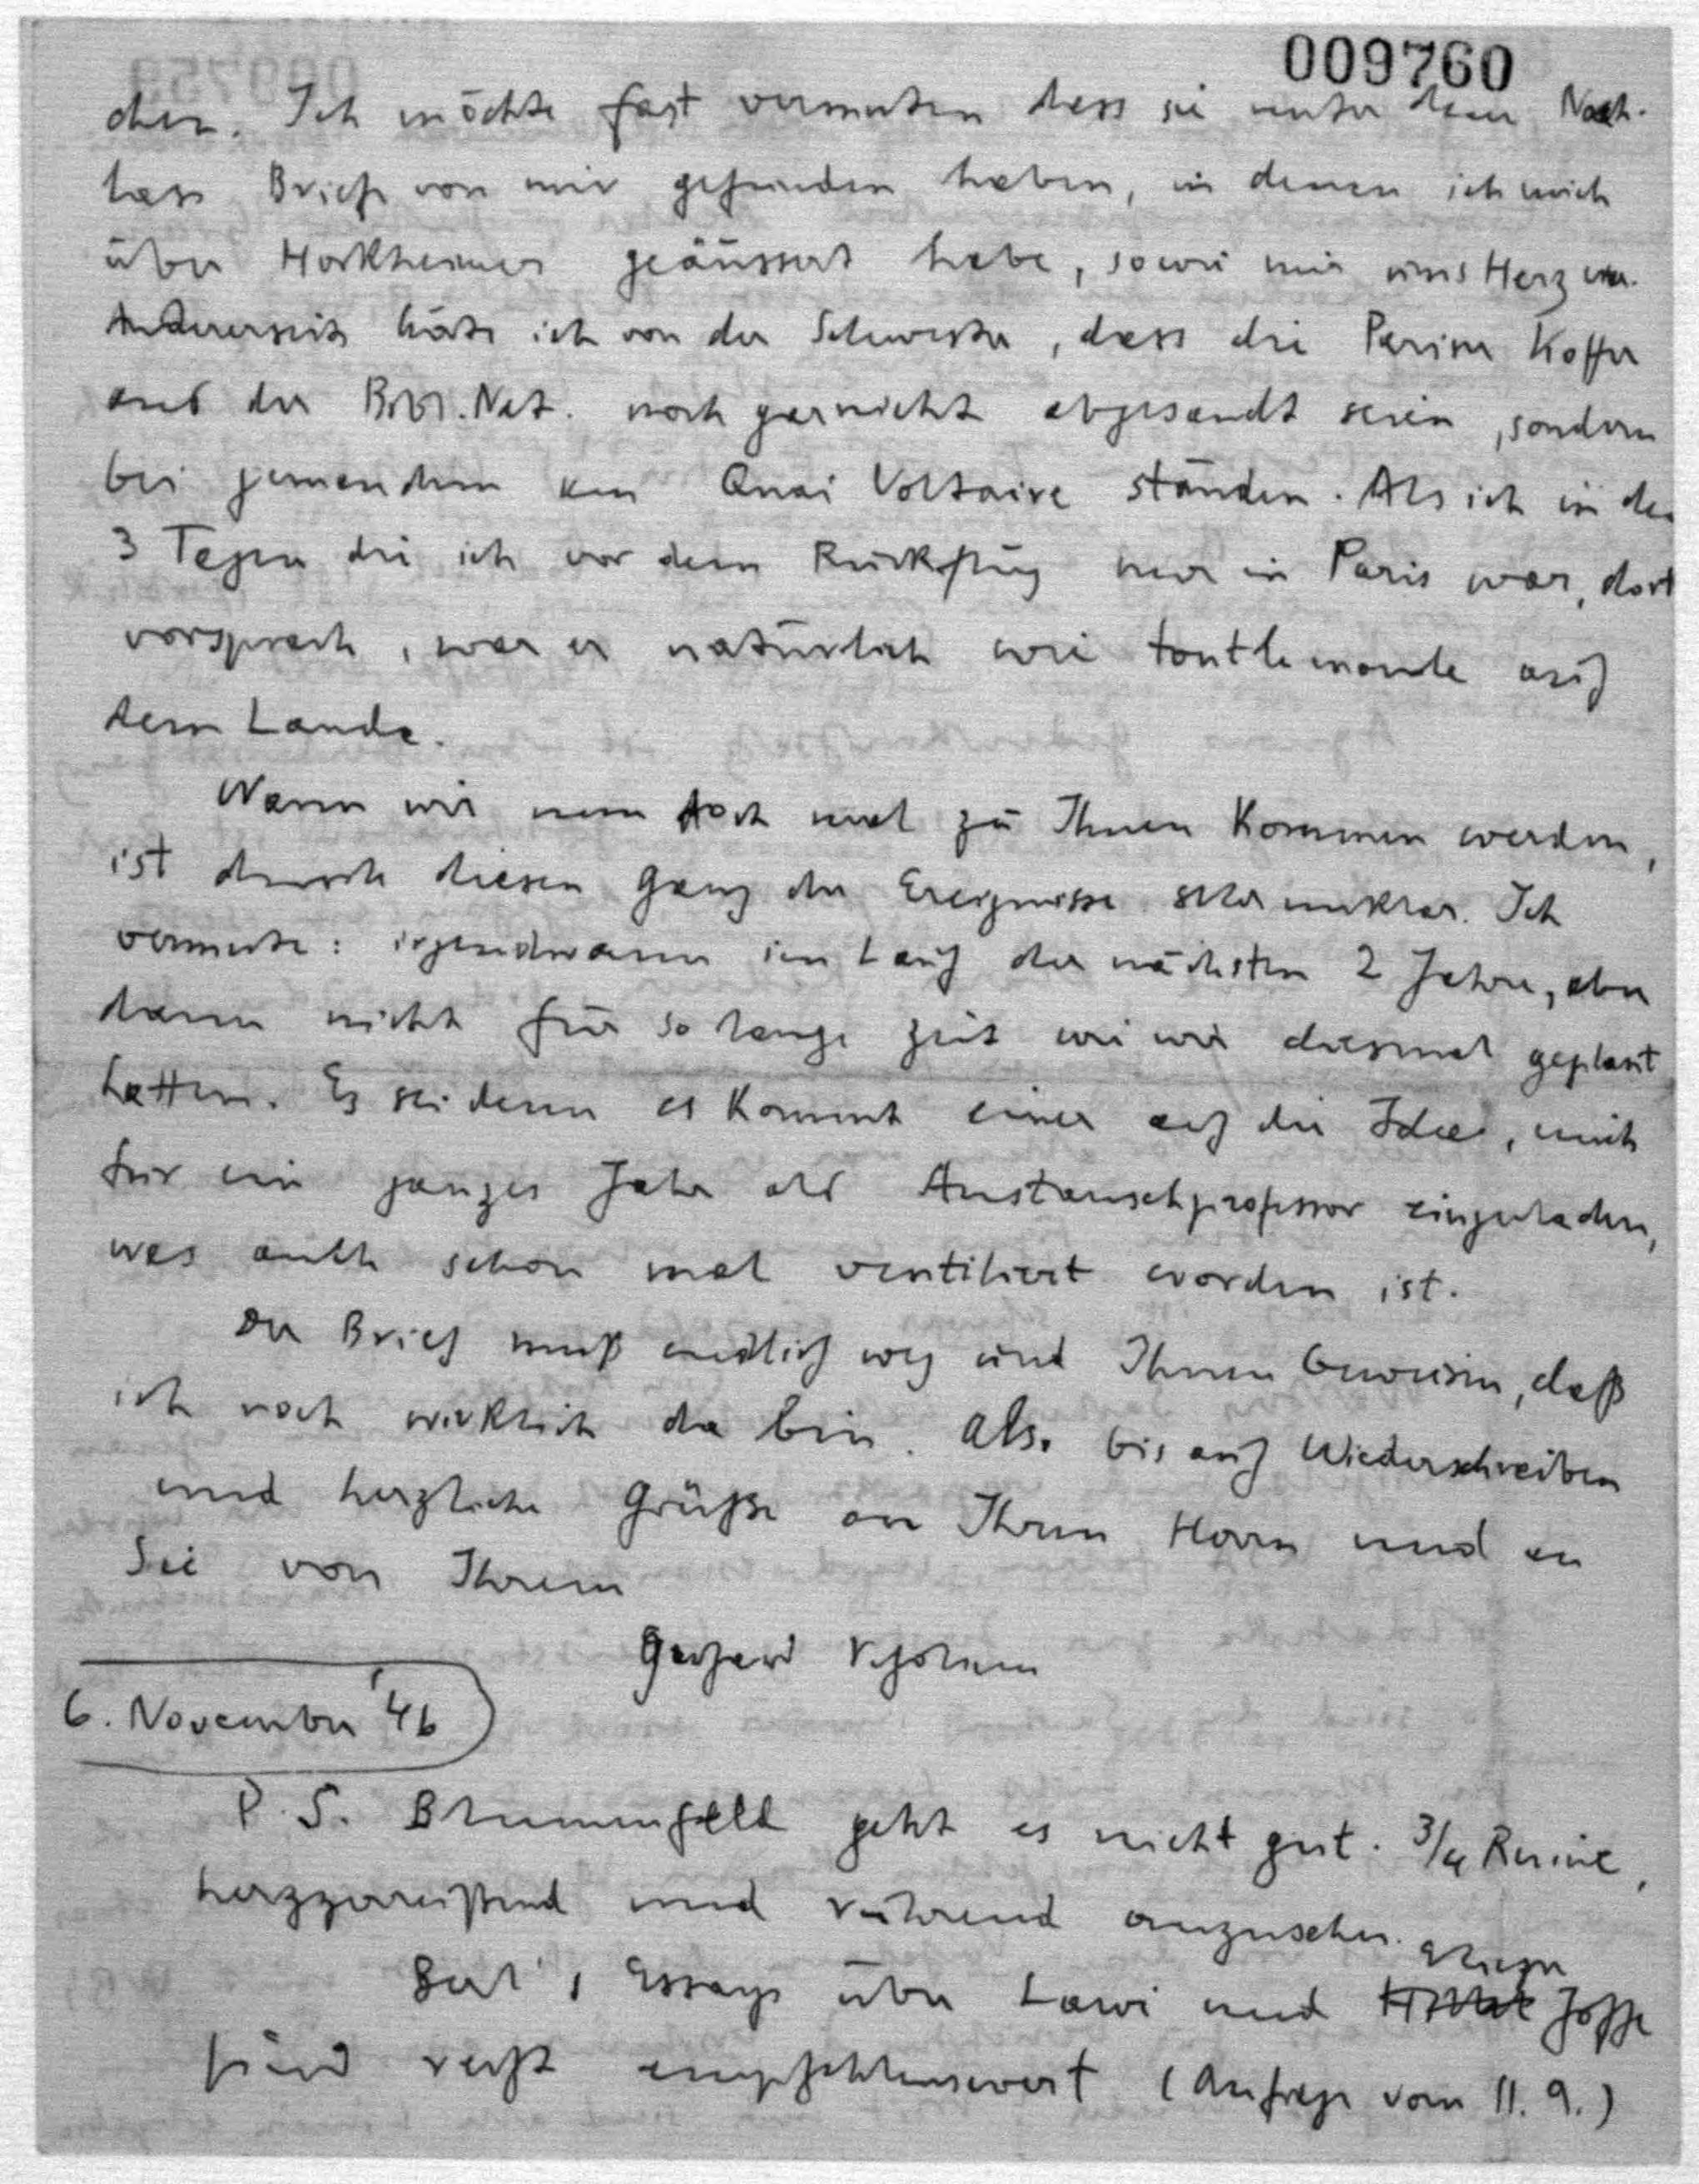 009760
chen. Ich möchte fast vermuten dass sie unter dem Nach-
lass Briefe von mir gefunden haben, in denen ich mich
über Horkheimer geäussert habe, sowie mir ums Herz war.
Andererseits höre ich von der Schwester, dass die Pariser Koffer
aus der Bibl. Nat. noch garnicht abgesandt seien, sondern
bei jemandem am Quai Voltaire ständen. Als ich in den
3 Tagen die ich vor dem Rückflug nur in Paris war, dort
vorsprach, war er natürlich wie toutlemonde auf
dem Lande.
Wann wir nun doch mal zu Ihnen kommen werden,
ist durch diesen Gang der Ereignisse sehr unklar. Ich
vermute: irgendwann im Lauf der nächsten 2 Jahre, aber
dann nicht für so lange Zeit wie wir diesmal geplant
hatten. Es sei denn es kommt einer auf die Idee, mich
für ein ganzes Jahr als Austauschprofessor einzuladen,
was auch schon mal ventiliert worden ist.
Der Brief muß endlich weg und Ihnen beweisen, daß
ich noch wirklich da bin. Also bis auf Wiederschreiben
und herzliche Grüße an Ihren Herrn und an
Sie von Ihrem
Gerhard Scholem
6. November '46
P.S. Blumenfeld geht es nicht gut. 3/4 Ruine,
herzzerreißend und rührend anzusehen.
über und Joffe
sind recht empfehlenswert (Anfrage vom 11. 9.)